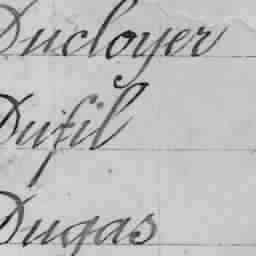 Ducloyer
Dufil
Dugas